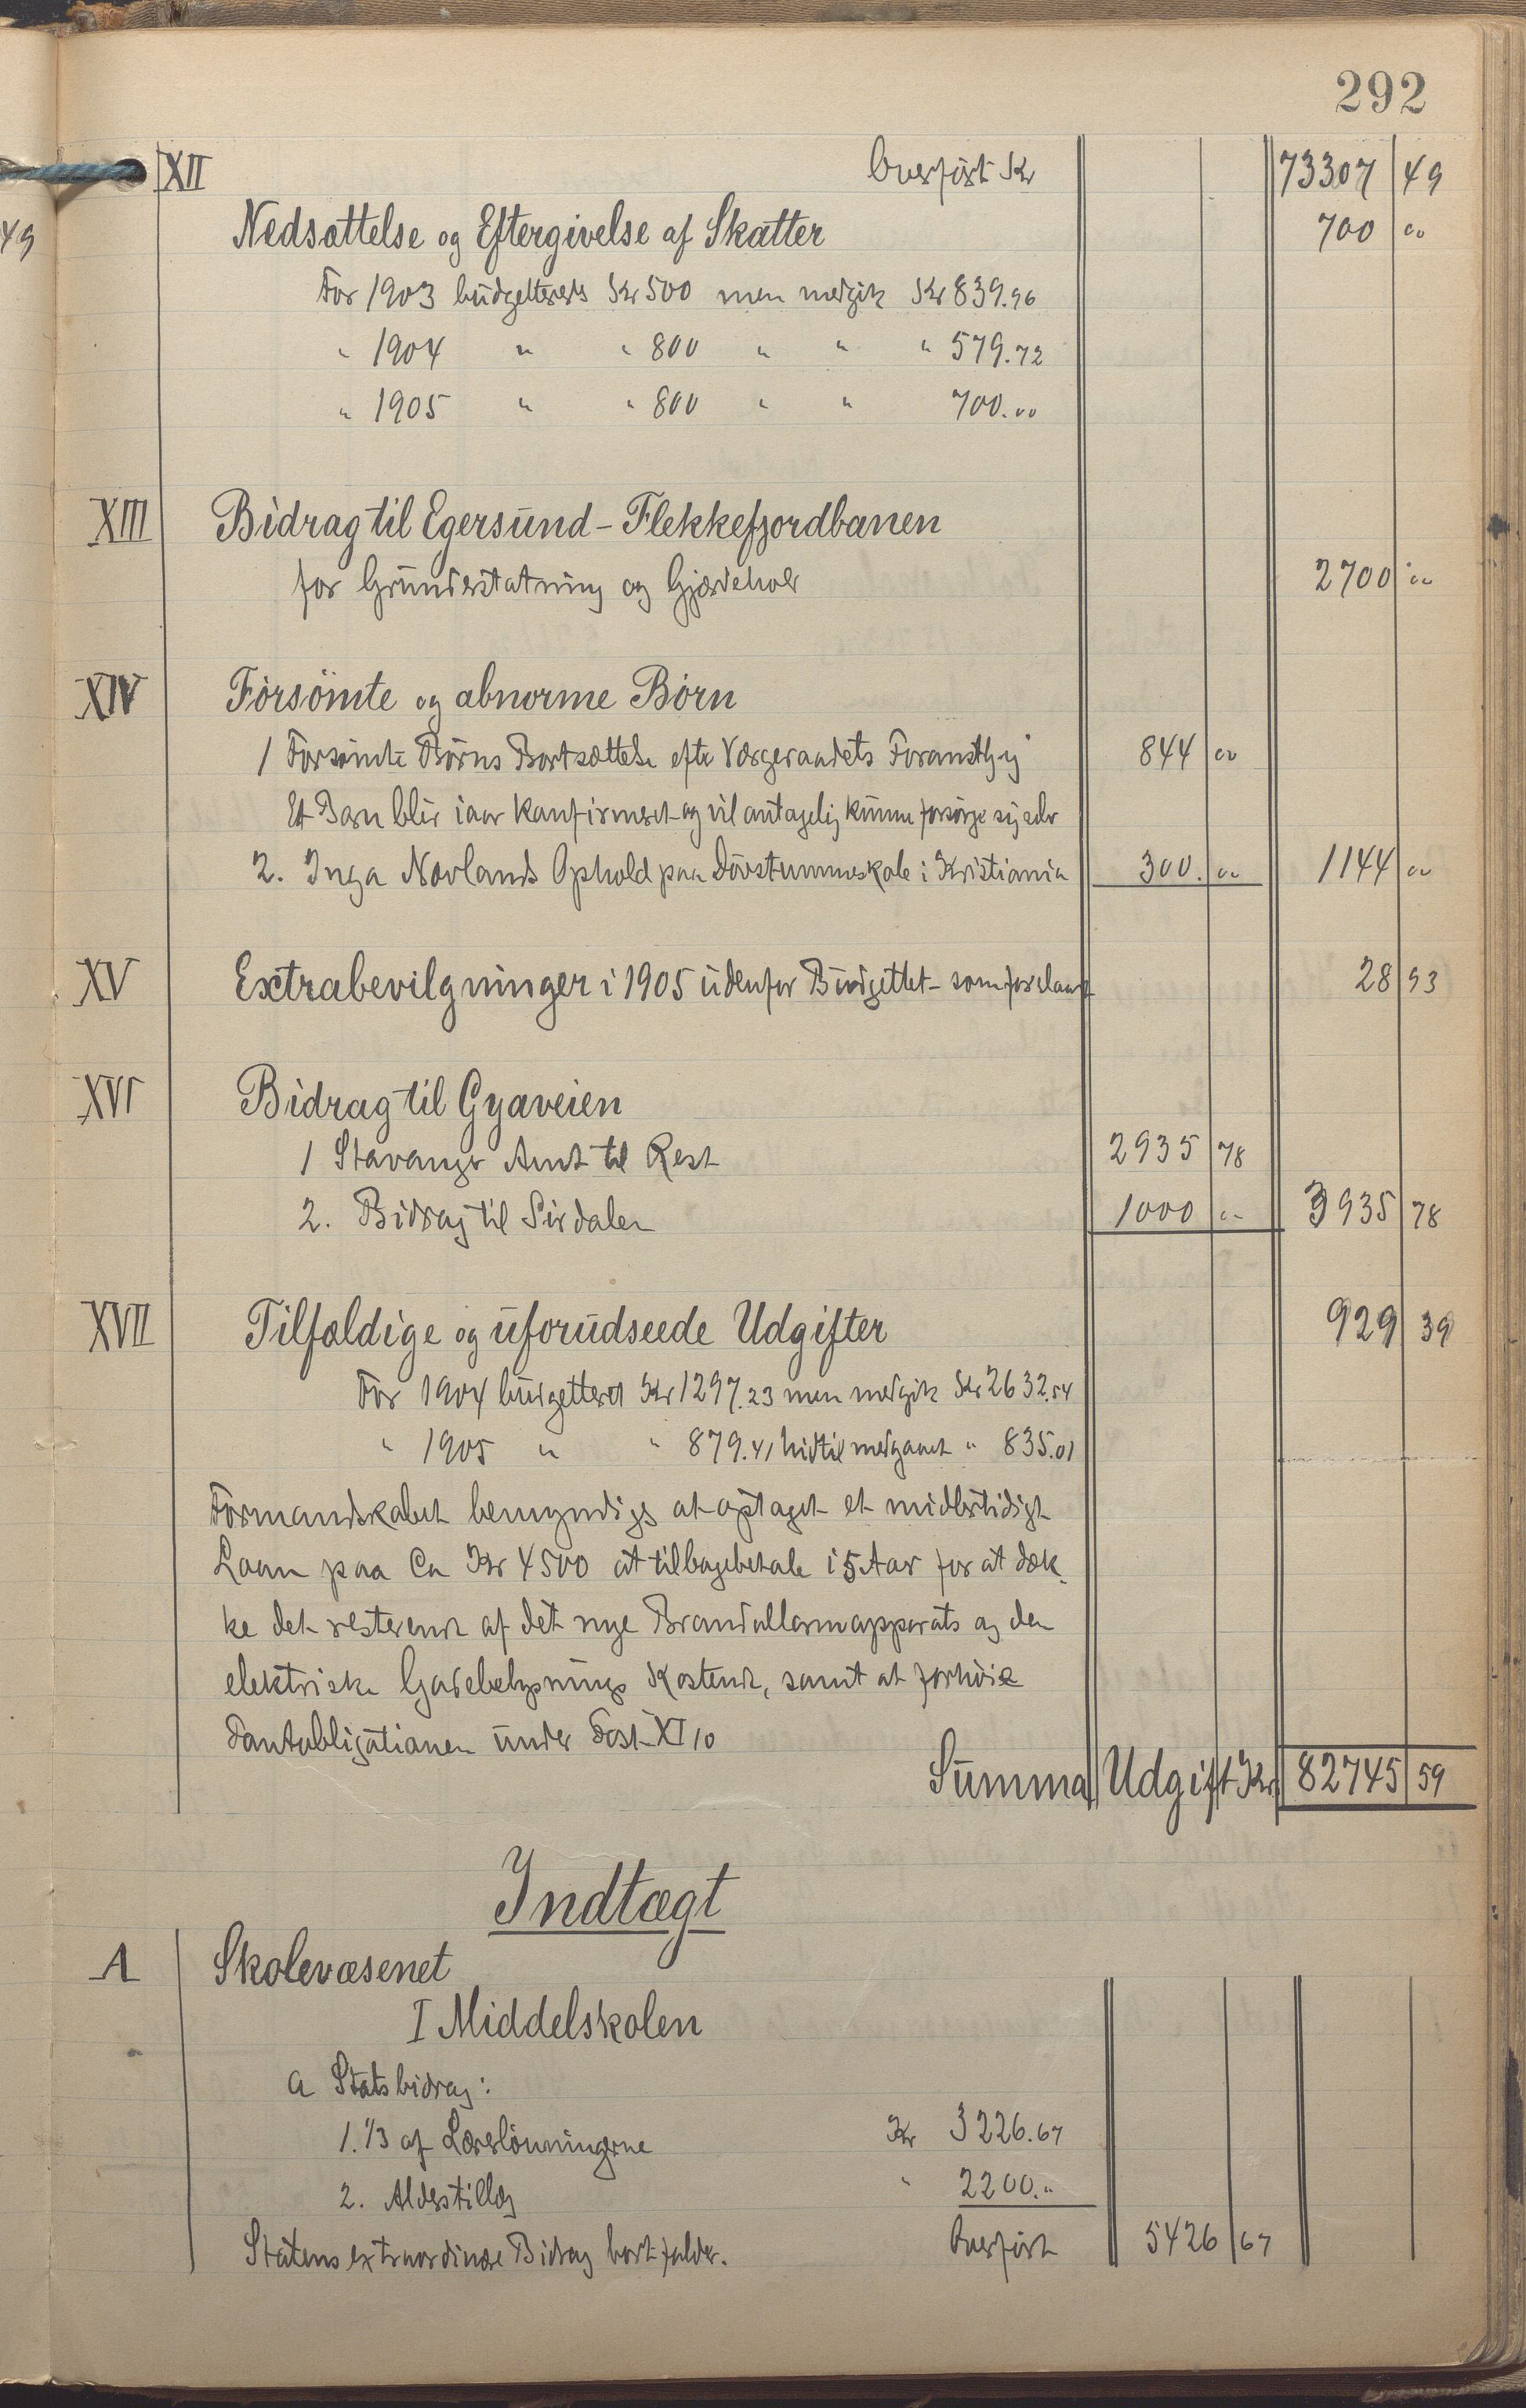 292
XII Overført Kr 73307 49
49
Nedsættelse og Eftergivelse af Skatter 700 "
For 1903 budgetteredes Kr 500 men medgik Kr 839.96
" 1904 " " 800 " " " 579.72
" 1905 " " 800 " " 700."
XIII Bidrag til Egersund - Flekkefjordbanen
for Grunderstatning og Gjærdehold 2700 "
XIV Forsömte og abnorme Börn
1 Forsömte Börns Bortsættelse efter Værgeraadets Foranstltg 844 "
Et Barn blir iaar konfirmeret og vil antagelig kunne forsörge sig selv
2. Inga Navlands Ophold paa Dövstummeskole i Kristiania 300. " 1144 "
XV Extrabevilgninger i 1905 udenfor Budgettet - som forelaant 28 93
XVI Bidrag til Gyaveien
1 Stavanger Amt til Rest 2935 78
2. Bidrag til Sirdalen 1000 " 3935 78
XVII Tilfældige og uforudseede Udgifter 929 39
For 1904 budgetteret Kr 1297.23 men medgik Kr 2632.54
" 1905 " " 879.41 hidtil medgaaet " 835.01
Formandskabet bemyndiges at optaget et midlertidigt
Laan paa Ca Kr 4500 at tilbagebetale i 5 Aar for at dæk-
ke det resterende af det nye Brandallarmapparats og den
elektriske Gadebelysnings Kostende, samt at forhöie
Pantobligationen under Post XI 10
Summa Udgift Kr. 82745 59
Indtægt
A Skolevæsenet
I Middelskolen
a Statsbidrag:
1. 1/3 af Lærerlönningerne Kr 3226.67
2. Alderstillæg " 2200."
Statens extraordinære Bidrag bortfalder. Overført 5426 67